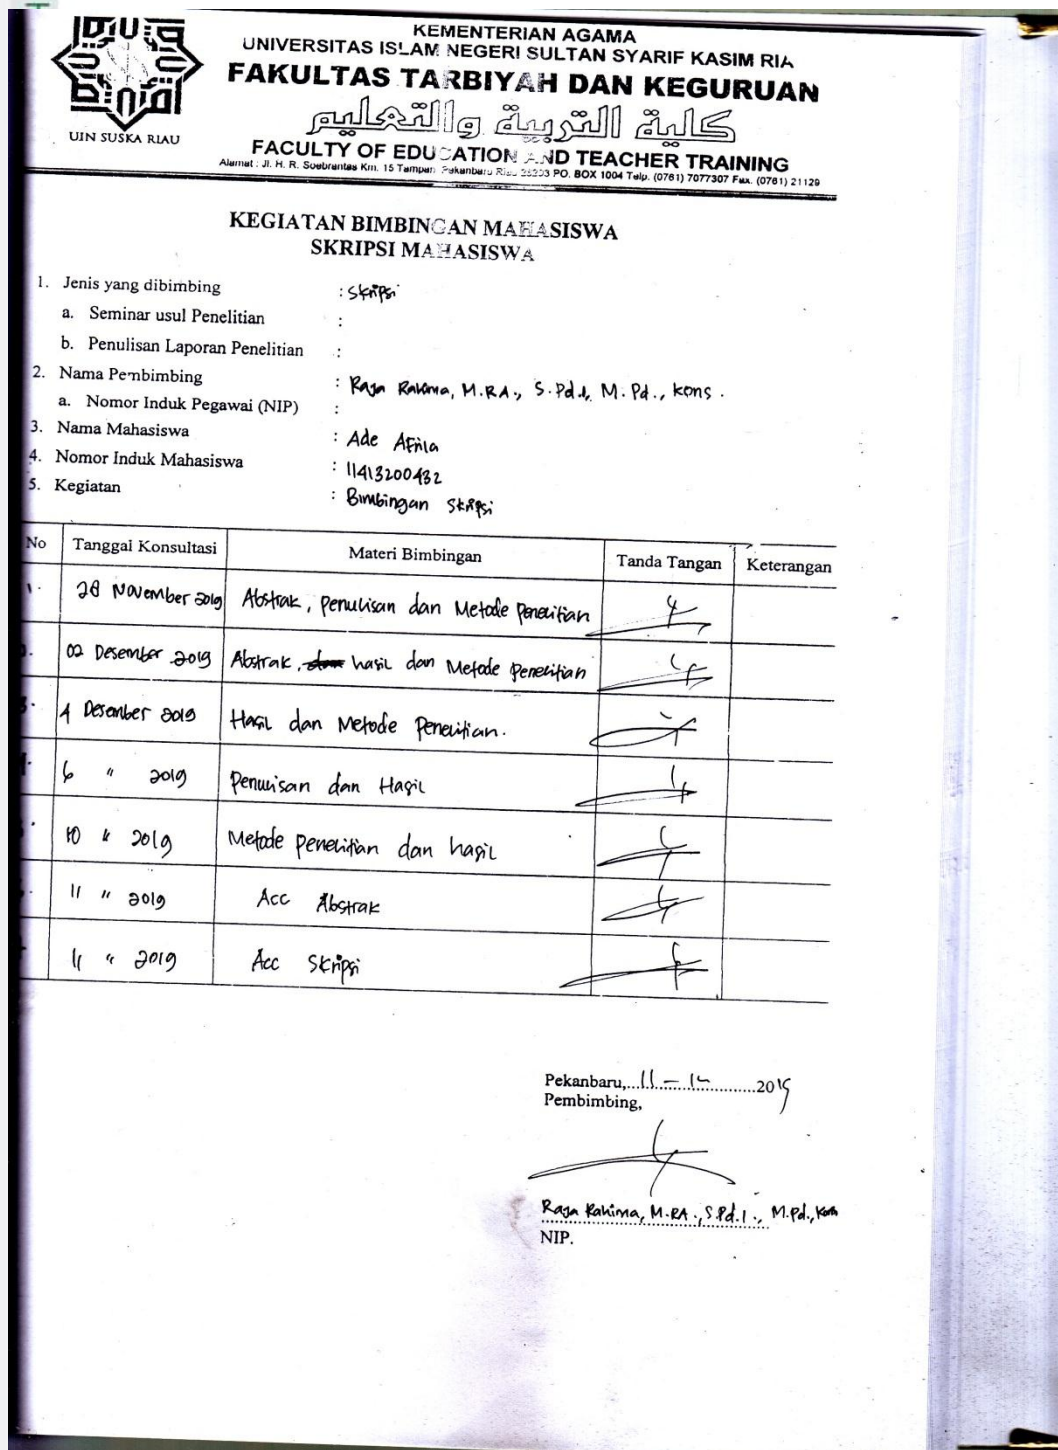 UIN SUSKA RIAU
KEMENTERIAN AGAMA
UNIVERSITAS ISLAM NEGERI SULTAN SYARIF KASIM RIA
FAKULTAS TARBIYAH DAN KEGURUAN
كلية التربية والتعليم
FACULTY OF EDUCATION AND TEACHER TRAINING
Alamat : Jl. H. R. Soebrantas Km. 15 Tampan Pekanbaru Riau 28293 PO. BOX 1004 Telp. (0761) 7077307 Fax. (0761) 21129
KEGIATAN BIMBINGAN MAHASISWA
SKRIPSI MAHASISWA
1. Jenis yang dibimbing : Skripsi
a. Seminar usul Penelitian :
b. Penulisan Laporan Penelitian :
2. Nama Pembimbing : Raja Rahima, M.RA., S.Pd.I, M.Pd., Kons.
a. Nomor Induk Pegawai (NIP) :
3. Nama Mahasiswa : Ade Afrila
4. Nomor Induk Mahasiswa : 11413200432
5. Kegiatan : Bimbingan Skripsi
No Tanggal Konsultasi Materi Bimbingan Tanda Tangan Keterangan
1. 28 November 2019 Abstrak, penulisan dan Metode Penelitian
2. 02 Desember 2019 Abstrak, hasil dan Metode Penelitian
3. 4 Desember 2019 Hasil dan Metode Penelitian.
6 " 2019 Penulisan dan Hasil
10 " 2019 Metode Penelitian dan hasil
11 " 2019 Acc Abstrak
11 " 2019 Acc Skripsi
Pekanbaru,...11 - 12...........2019
Pembimbing,
Raja Rahima, M.RA., S.Pd.I., M.Pd., Kons
NIP.